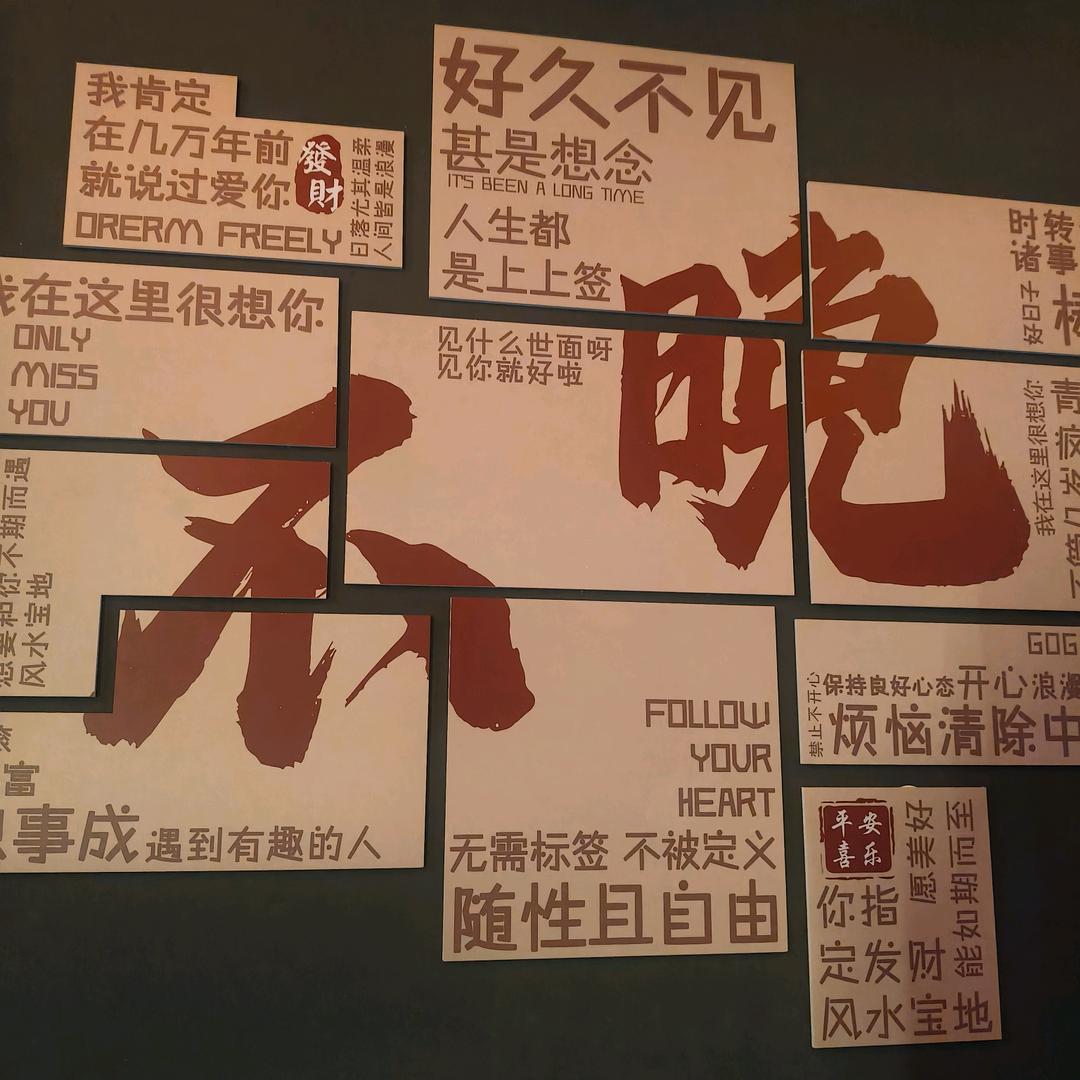 我肯定
在几万年前
就说过爱你
DRERM FREELY
發財
日落尤其温柔
人间皆是浪漫
好久不见
甚是想念
IT'S BEEN A LONG TIME
人生都
是上上签
时转
诸事
好日子
我在这里很想你
ONLY
MISS
YOU
见什么世面呀
见你就好啦
不晚
我在这里很想你
想要和你不期而遇
风水宝地
事成
遇到有趣的人
FOLLOW
YOUR
HEART
无需标签 不被定义
随性且自由
GOG
禁止不开心
保持良好心态
开心
烦恼清除中
平安
喜乐
愿美好
能如期而至
你指
定发财
风水宝地